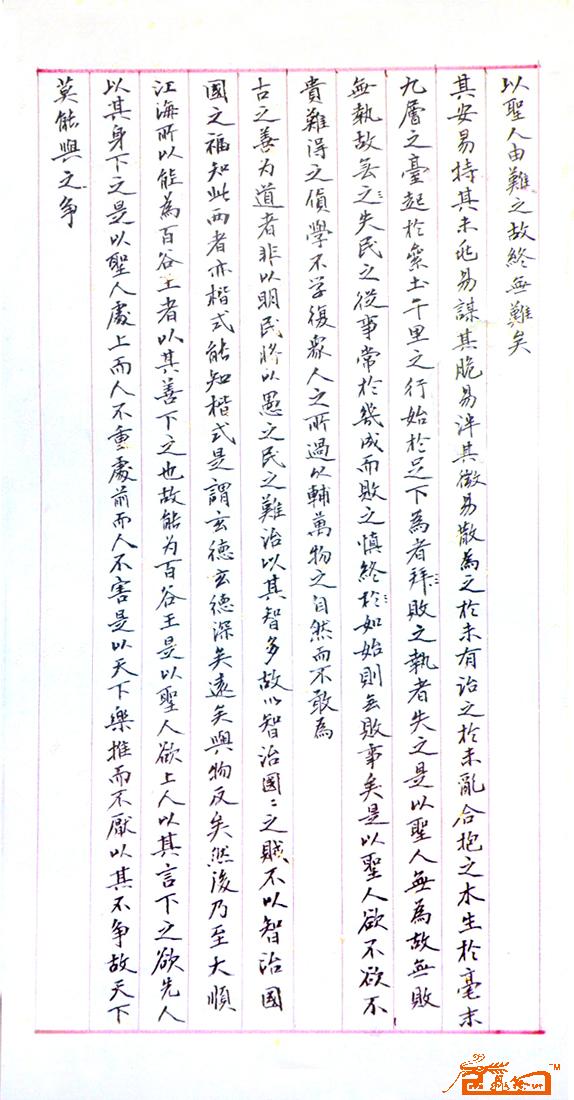 以聖人由難之故終無難矣
其安易持其未兆易謀其脆易泮其微易散為之於未有治之於未亂合抱之木生於毫末
九層之臺起於絫土千里之行始於足下為者拜敗之執者失之是以聖人無為故無敗
無執故無之失民之從事常於幾成而敗之慎終於如始則無敗事矣是以聖人欲不欲不
貴難得之貨學不学復眾人之所過以輔萬物之自然而不敢為
古之善为道者非以明民將以愚之民之難治以其智多故以智治國〻之賊不以智治國
國之福知此两者亦楷式能知楷式是謂玄德玄德深矣遠矣與物反矣然後乃至大順
江海所以能為百谷王者以其善下之也故能为百谷王是以聖人欲上人以其言下之欲先人
以其身下之是以聖人處上而人不重處前而人不害是以天下樂推而不厭以其不争故天下
莫能與之争